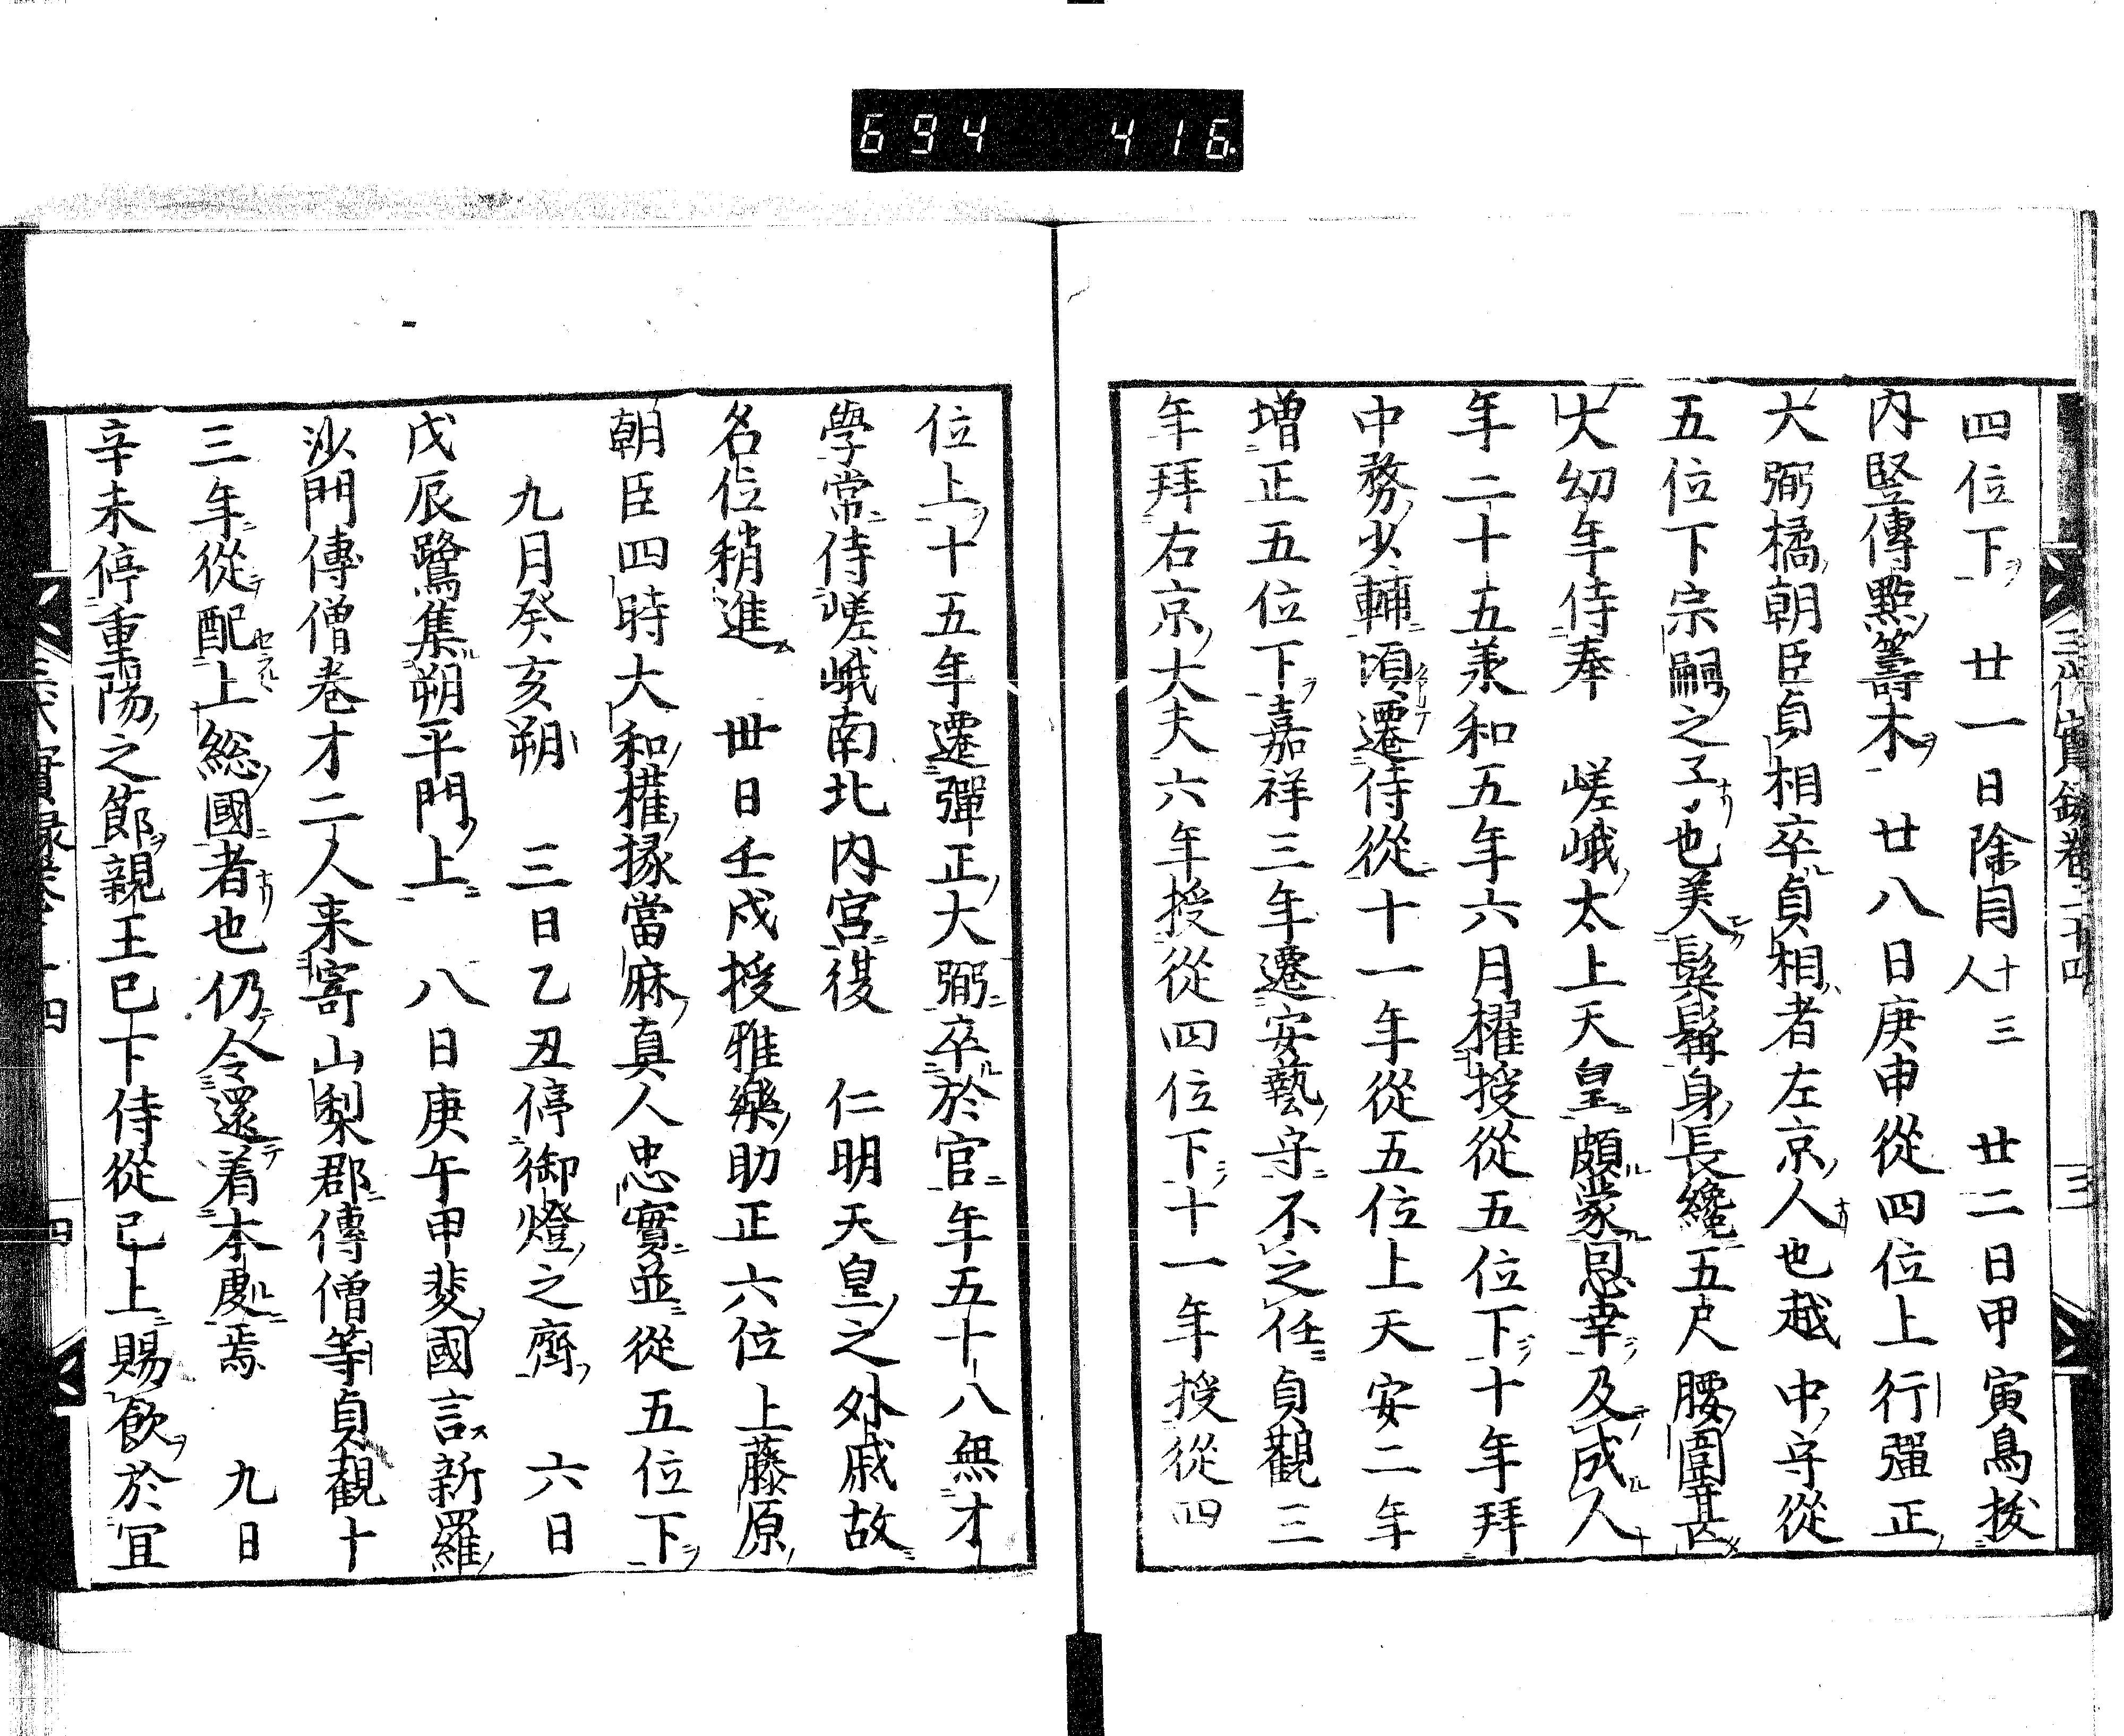 694 416.
三代實録卷二十四 三
四位下 廿一日除目十三人 廿二日甲寅鳥拔
内竪傳㸃籌木 廿八日庚申從四位上行彈正
大弼橘朝臣貞相卒貞相者左京人也越中守從
五位下宗嗣之子也美鬚髯身長纔五尺腰圍甚
大幼年侍奉 嵯峨太上天皇頗蒙恩幸及成人
年二十五羕和五年六月櫂授從五位下十年拜
中務少輔頃遷侍從十一年從五位上天安二年
增正五位下嘉祥三年遷安藝守不之任貞觀三
年拜右京大夫六年授從四位下十一年授從四
位上十五年遷彈正大弼卒於官年五十八無才
學常侍嵯峨南北内宮復 仁明天皇之外戚故
名位稍進 丗日壬戌授雅樂助正六位上藤原
朝臣四時大和權掾當麻真人忠實並從五位下
九月癸亥朔 三日乙丑停御燈之齋 六日
戊辰鷺集朔平門上 八日庚午甲斐國言新羅
沙門傳僧卷才二人来寄山梨郡傳僧等貞観十
三年從配上総國者也仍令還着本處焉 九日
辛未停重陽之節親王已下侍從已上賜飲於宜
三代實録卷二十四 四